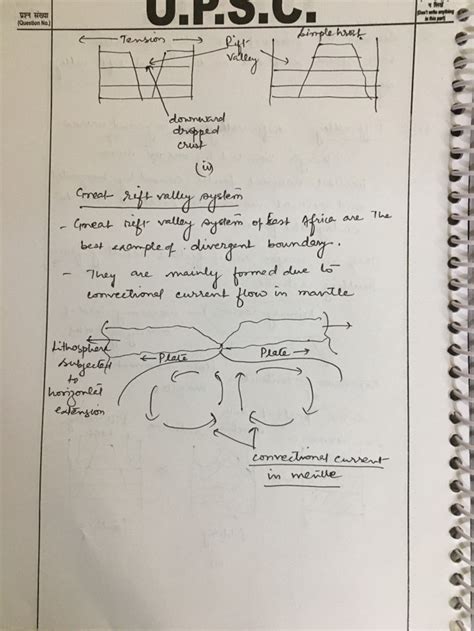 U.P.S.C.
प्रश्न संख्या
(Question No.)
(Don't write anything
in this part)
Tension
Rift
valley
Simple horst
downward
dropped
crust
(ii)
Great rift valley system
- Great rift valley system of East Africa are the
best example of divergent boundary.
- They are mainly formed due to
convectional current flow in mantle
Lithosphere
subjected
to
horizontal
extension
Plate
Plate
convectional current
in mentle